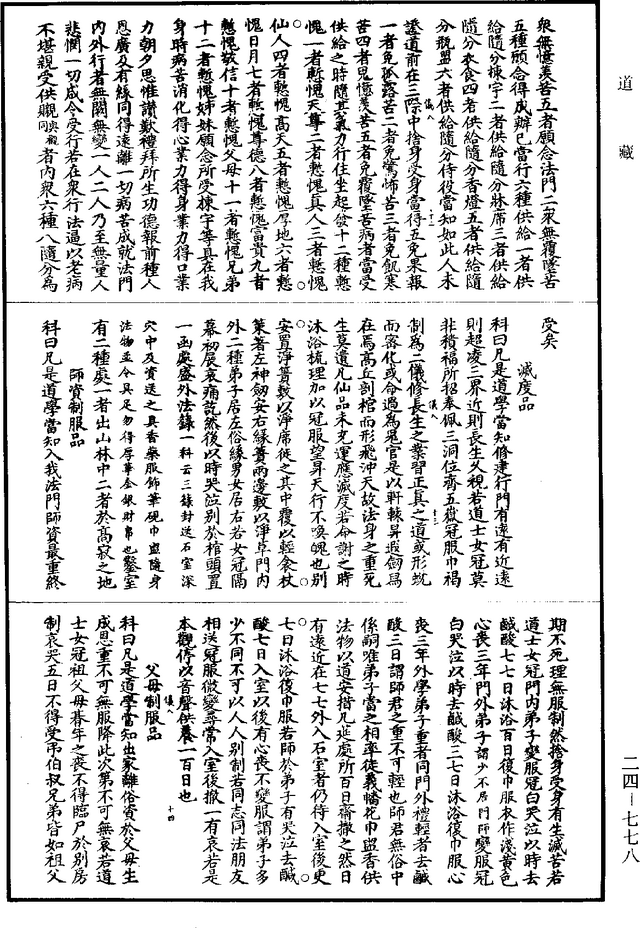 道藏
衆無憶羨苦五者願念法門二衆無覆墜苦
五種頗念得成辦已當行六種供給一者供
給隨分棟宇二者供給隨分牀席三者供給
隨分衣食四者供給隨分香燈五者供給隨
分瓶盥六者供給隨分侍役當知如此人未
證道前在三際中捨身受身當得五免果報
儀八 十二
一者免孤露苦二者免驚怖苦三者免飢寒
苦四者免憶羨苦五者免覆墜苦病者當受
供給之時隨其氣力行住坐起發十二種慙
愧一者慙愧天尊二者慙愧真人三者慙愧
仙人四者慙愧高天五者慙愧厚地六者慙
愧日月七者慙愧尊德八者慙愧富貴九者
慙愧敬信十者慙愧父母十一者慙愧兄弟
十二者慙愧姊妹願念所受棟宇等具在我
身時病苦消化得心業力得身業力得口業
力朝夕思惟讚歎禮拜所生功德報前種人
恩廣及有緣同得遠離一切病苦成就法門
内外行者無闕無變一人二人乃至無量人
悲憫一切咸令受行若在衆行法逼以老病
不堪親受供覜者内衆六種八隨分為
受矣
滅度品
科曰凡是道學當知修建行門有遠有近遠
則超凌三界近則長生久視若道士女冠莫
非積福所招奉佩三洞位齊五嶽冠服巾褐
儀八 十三
制為二儀修長生之業習正真之道或形蛻
而竅化或命過為鬼官是以軒轅昇遐劒舄
在焉高丘剖棺而形飛沖天故法身之重死
生莫遺凡仙品未充運應滅度若命謝之時
沐浴梳理加以冠服望昇天行不喚魄也别
安置淨簀敷以淨席徙之其中覆以輕衾杖
策著左神劒安右緣簀兩邊敷以淨草門内
外二種弟子居左俗緣男女居右若女冠隔
幕初展哀痛訖然後以時哭泣别於棺頭置
一函處盛外法錄一科云三錄封送石室深
穴中及資送之具香藥服飾筆硯巾盥隨身
法物並令具足勿得厚華金銀財帛也鑿室
有二種處一者出山林中二者於高寂之地
師資制服品
科曰凡是道學當知入我法門師資最重終
期不死理無服制然捨身受身有生滅苦若
道士女冠門内弟子變服冠白哭泣以時去
鹹酸七七日沐浴百日復巾服衣作淺黃色
心喪三年門外弟子謂少不居門師變服冠
白哭泣以時去鹹酸三七日沐浴復巾服心
喪三年外學弟子重者同門外禮輕者去鹹
酸三日謂師君之重不可輕也師君無俗中
係嗣唯弟子當之相率徒義幡花巾盥香供
法物以道安措凡延處所百日齋撤之然日
有遠近在七七外入石室者仍待入室後更
七日沐浴復巾服若師於弟子有哭泣去鹹
酸七日入室以後有心喪不變服謂弟子多
少不同不可以人人别制若同志同法朋友
相送冠服微變尋常入室後撤一有哀若是
本觀停以音聲供養一百日也
儀八 十四
父母制服品
科曰凡是道學當知出家離俗資於父母生
成恩重不可無服降此次第不可無哀若道
士女冠祖父母朞年之喪不得臨尸於别房
制哀哭五日不得受弔伯叔兄弟皆如祖父
二四—七七八